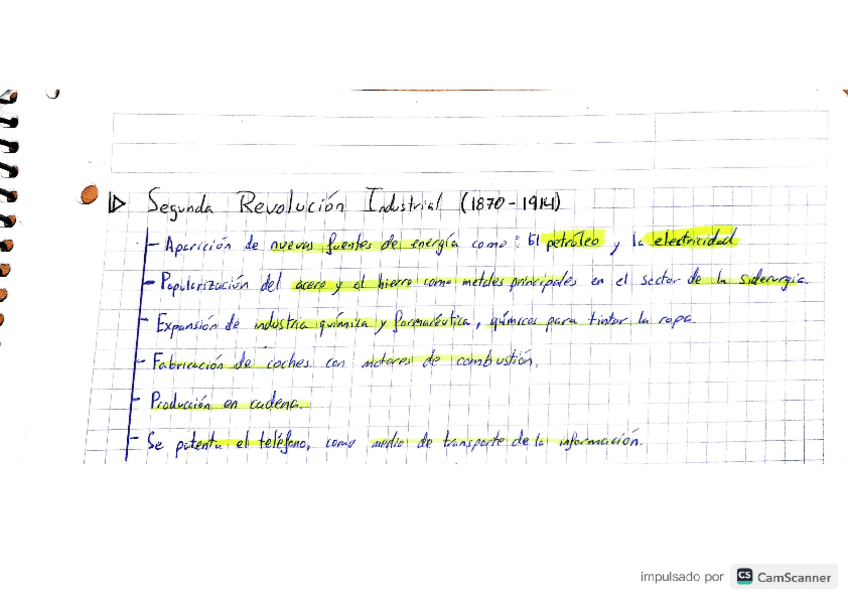 Segunda Revolución Industrial (1870-1914)
- Aparición de nuevas fuentes de energía como: El petróleo y la electricidad
- Popularización del acero y el hierro como metales principales en el sector de la siderurgia.
- Expansión de industria química y farmaceútica, químicos para tintar la ropa.
- Fabricación de coches con motores de combustión.
- Producción en cadena.
- Se patenta el teléfono, como medio de transporte de la información.
impulsado por CS CamScanner